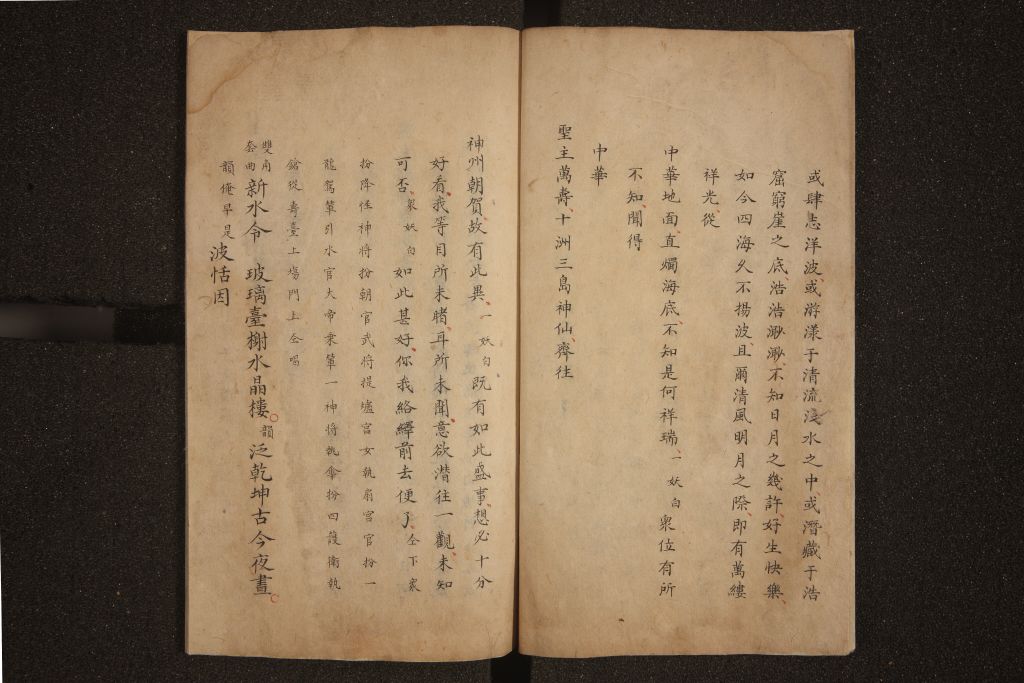 或肆志洋波、或游漾于清流淺水之中、或潛藏于浩
窟窮崖之底、浩浩渺渺、不知日月之幾許、好生快樂、
如今四海久不揚波、且爾清風明月之際、即有萬縷
祥光、從
中華地面、直燭海底、不知是何祥瑞、一妖白眾位有所
不知、聞得
中華
聖主萬壽、十洲三島神仙、齊往
神州朝賀、故有此異、一妖白既有如此盛事、想必十分
好看、我等目所未睹、耳所未聞、意欲潛往一觀、未知
可否、眾妖白如此甚好、你我絡繹前去便了、仝下眾
扮降性神將扮朝官武將提爐宮女執扇宮官扮一
龍駕輦引水官大帝乘輦一神將執傘扮四護衛執
鎗從壽臺上塲門上仝唱
雙角套曲新水令 玻璃臺榭水晶樓韻泛乾坤古今夜晝
韻俺早是波恬因